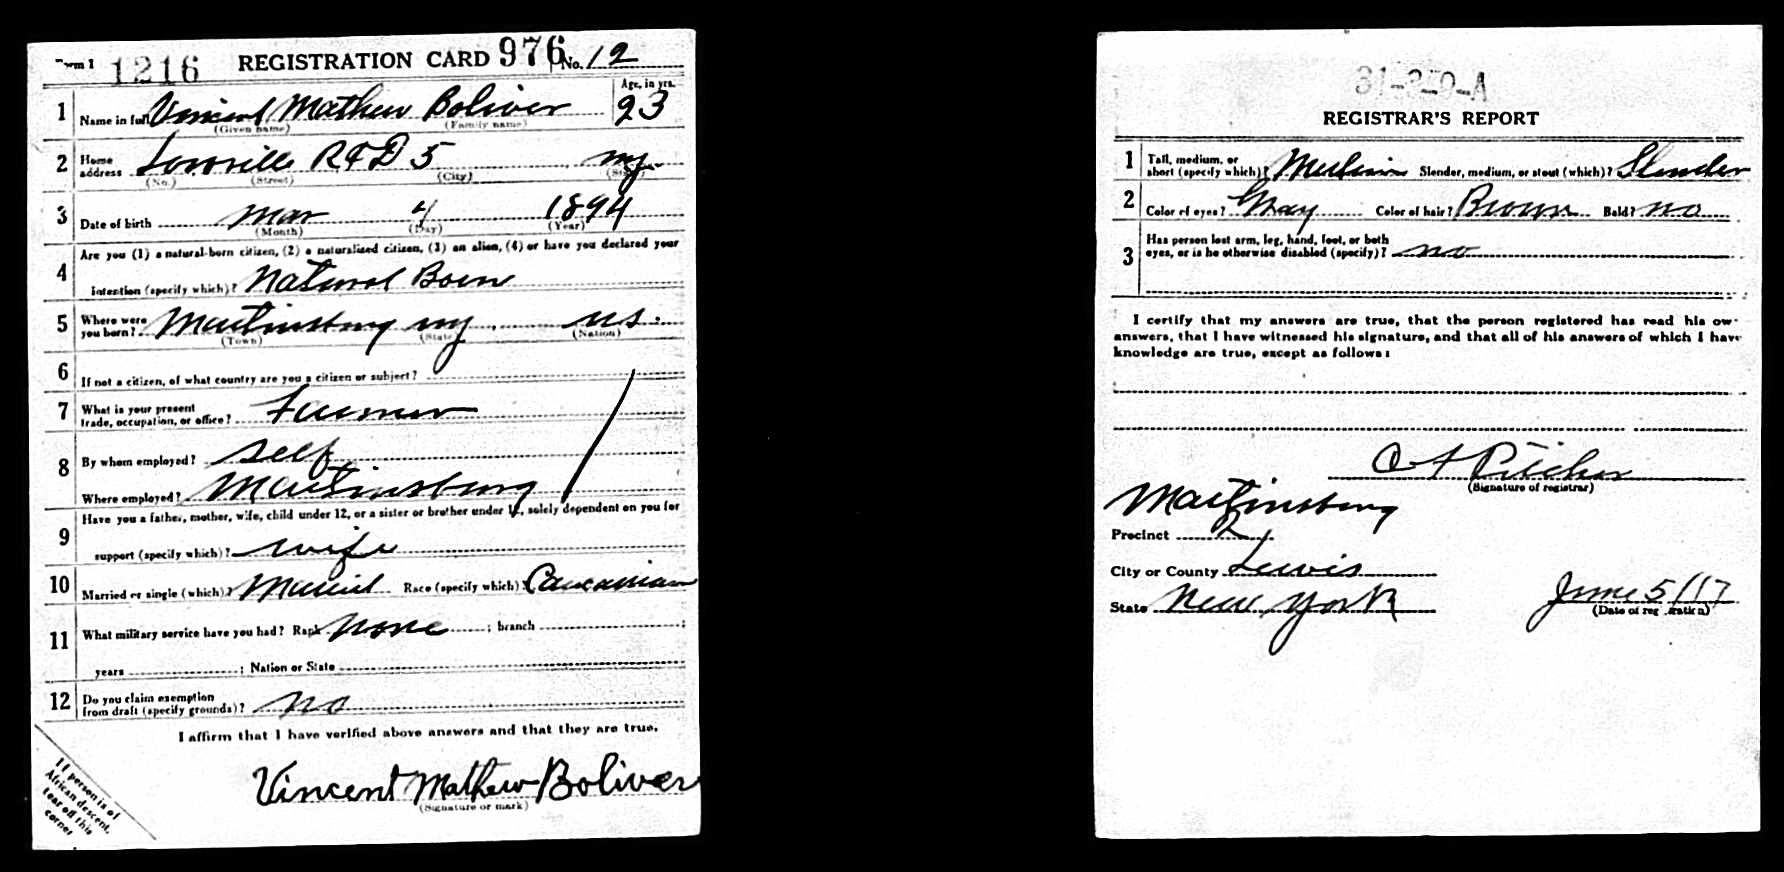 Form 1 1216 REGISTRATION CARD 976 No. 12
1 Name in full Vincent Mathew Boliver Age, in yrs. 23
(Given name) (Family name)
2 Home address Lowville RFD 5 ny.
(No.) (Street) (City) (State)
3 Date of birth Mar 4 1894
(Month) (Day) (Year)
4 Are you (1) a natural-born citizen, (2) a naturalized citizen, (3) an alien, (4) or have you declared your
intention (specify which)? Natural Born
5 Where were you born? Martinsburg ny. us.
(Town) (State) (Nation)
6 If not a citizen, of what country are you a citizen or subject?
7 What is your present trade, occupation, or office? Farmer
8 By whom employed? self
Where employed? Martinsburg
9 Have you a father, mother, wife, child under 12, or a sister or brother under 12, solely dependent on you for
support (specify which)? wife
10 Married or single (which)? Married Race (specify which)? Caucasian
11 What military service have you had? Rank none ; branch ;
years ; Nation or State
12 Do you claim exemption from draft (specify grounds)? no
I affirm that I have verified above answers and that they are true.
Vincent Mathew Boliver
(Signature or mark)
If person is of
African descent,
tear off this
corner
31-2-9-A
REGISTRAR'S REPORT
1 Tall, medium, or short (specify which)? Medium Slender, medium, or stout (which)? Slender
2 Color of eyes? Gray Color of hair? Brown Bald? no
3 Has person lost arm, leg, hand, foot, or both
eyes, or is he otherwise disabled (specify)? no
I certify that my answers are true, that the person registered has read his own
answers, that I have witnessed his signature, and that all of his answers of which I have
knowledge are true, except as follows:
(Signature of registrar)
Martinsburg
Precinct 2
City or County Lewis
State New York June 5/17
(Date of registration)